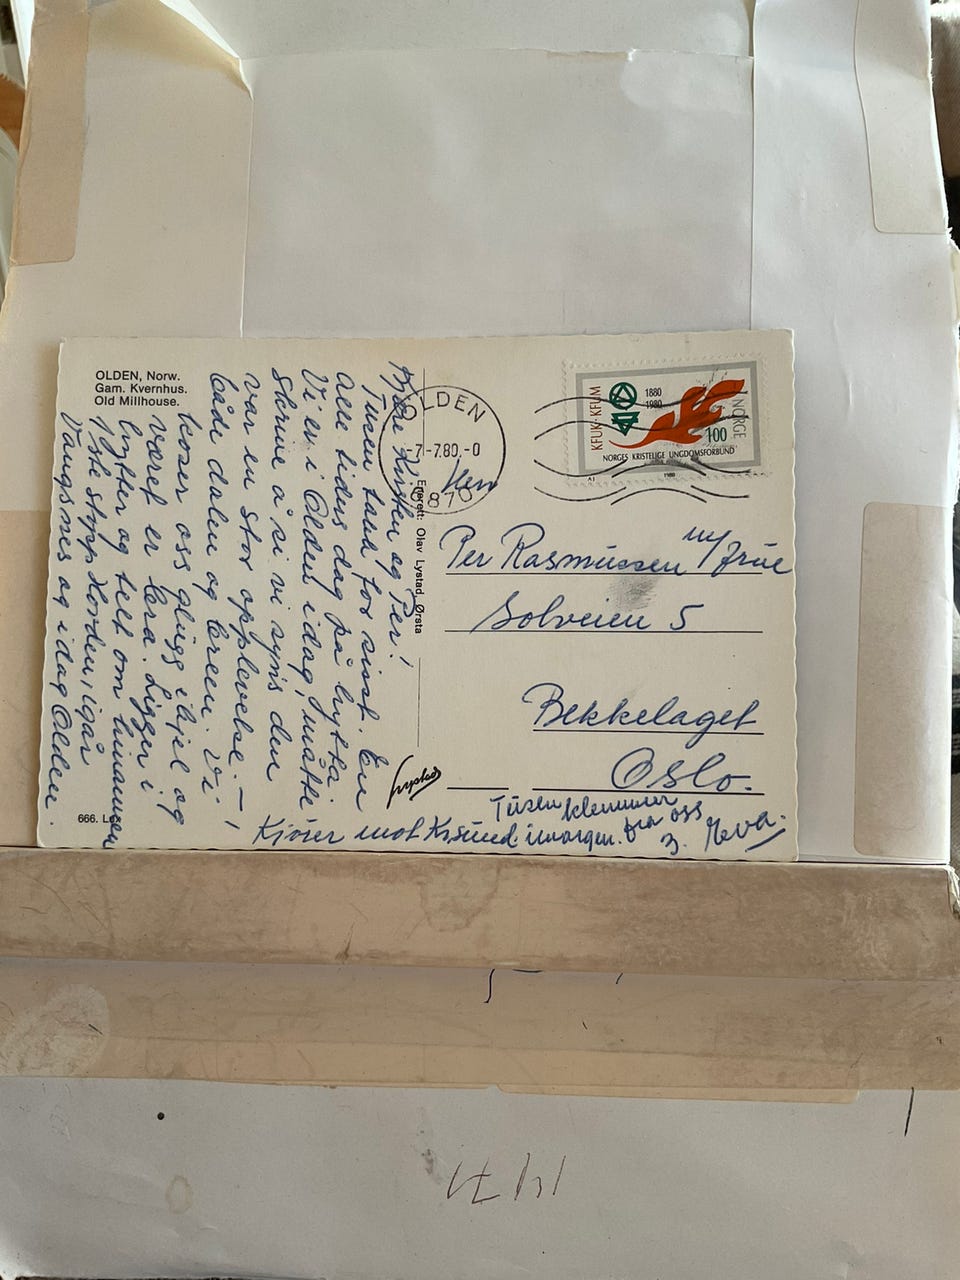 OLDEN, Norw.
Gam. Kvernhus.
Old Millhouse.
Kjære Kirsten og Per!
Tusen takk for sist. En
alle tiders dag på hytta.
Vi er i Olden idag, måtte
skrive å si vi syns den
var en stor opplevelse. —
både dalen og breen. Vi
koser oss glugg ihjel og
været er bra. Ligger i
hytter og telt om hinannen
stopp Horden, igår
Vangsnes og idag Olden.
Kjører mot Krsund imorgen.
Tusen klemmer
fra oss
3. Eva.
666. L
Enerett: Olav Lystad, Ørsta
OLDEN
-7.-7.80.-0
6870
KFUK-KFUM
1880
1980
NORGE
100
NORGES KRISTELIGE UNGDOMSFORBUND
1980
Herr
Per Rasmussen m/frue
Solveien 5
Bekkelaget
Oslo.